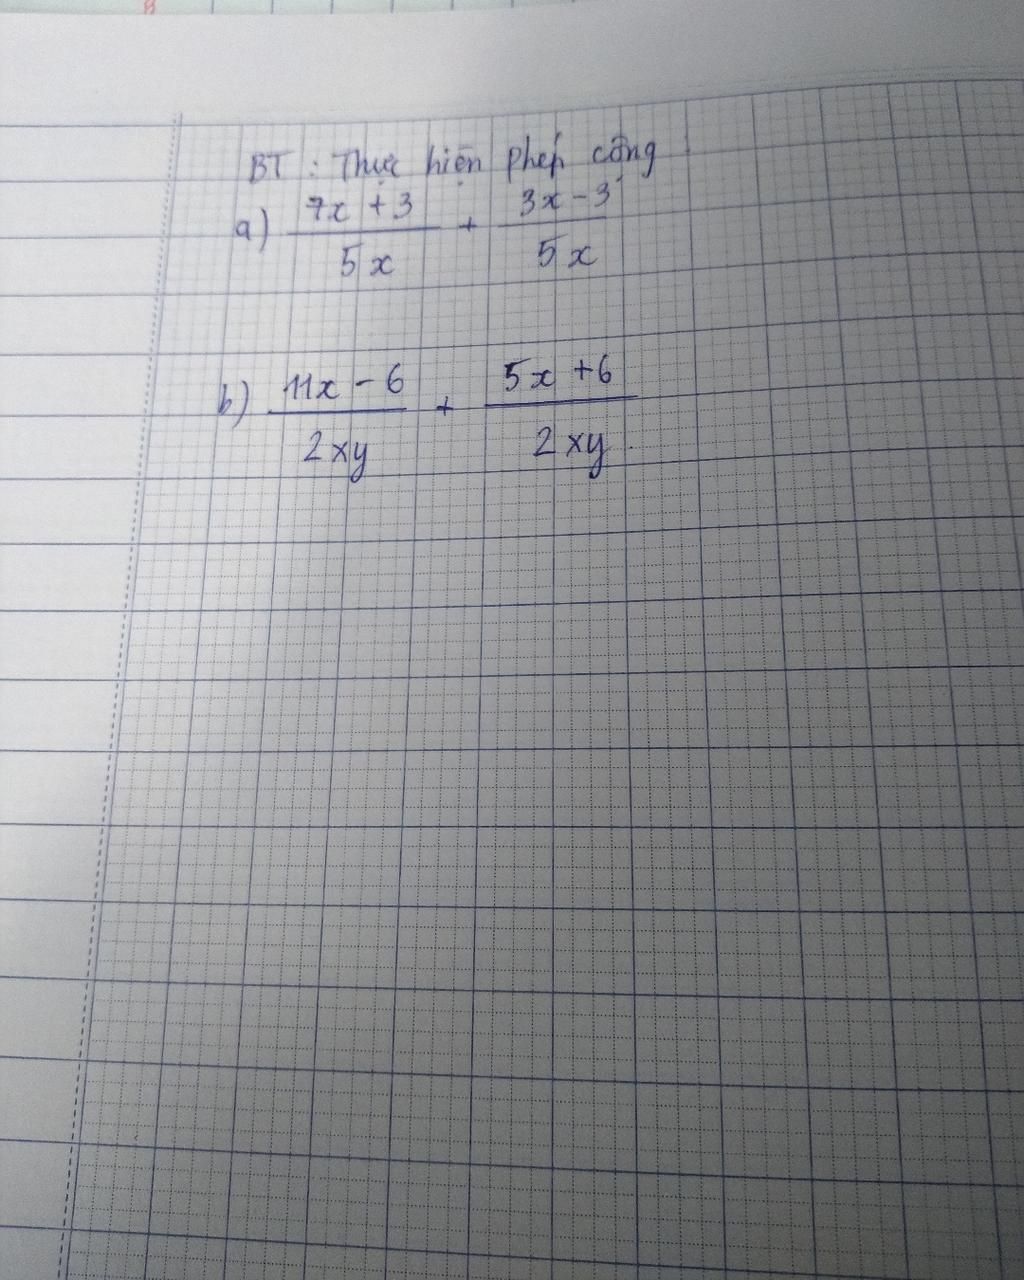 BT : Thực hiện phép cộng
a) \frac{7x + 3}{5x} + \frac{3x - 3}{5x}
b) \frac{11x - 6}{2xy} + \frac{5x + 6}{2xy}